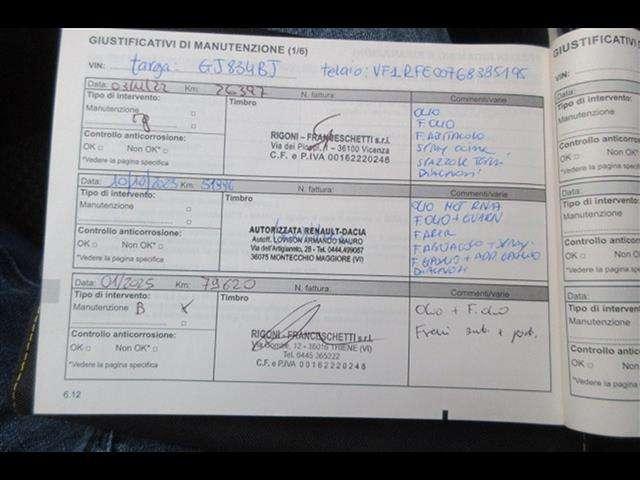 GIUSTIFICATIVI DI MANUTENZIONE (1/6)
VIN: targa: GJ834BJ telaio: VF1RFE00768385195
Data: Km: 26397 N. fattura: Commenti/varie
Tipo di intervento: Timbro OLIO
Manutenzione □ F. OLIO
□ F. ABITACOLO
Controllo anticorrosione:
OK □ Non OK* □
*Vedere la pagina specifica
RIGONI - FRANCESCHETTI s.r.l.
36100 Vicenza
C.F. e P.IVA 00162220248
SPAZZOLE TERG.
DIAGNOSI
Data: 10/10/2023 Km: N. fattura: Commenti/varie
Tipo di intervento: Timbro OLIO MOTORE
Manutenzione □ F. OLIO + GUARN
□ F. ARIA
Controllo anticorrosione:
OK □ Non OK* □
*Vedere la pagina specifica
AUTORIZZATA RENAULT-DACIA
Autoff. LOVISON ARMANDO MAURO
Via dell'Artigianato, 28 - Tel. 0444.499067
36075 MONTECCHIO MAGGIORE (VI)
DIAGNOSI
Data: 01/2025 Km: 79620 N. fattura: Commenti/varie
Tipo di intervento: Timbro
Manutenzione B x Olio + F. olio
□ Freni ant. + post.
Controllo anticorrosione:
OK □ Non OK* □
*Vedere la pagina specifica
RIGONI - FRANCESCHETTI s.r.l.
12 - 36016 THIENE (VI)
Tel. 0445 365222
C.F. e P.IVA 00162220248
6.12
GIUSTIFICATIVI
VIN:
Data:
Tipo di intervento:
Manutenzione
Controllo anticorrosione:
OK □ Non OK* □
*Vedere la pagina specifica
Data:
Tipo di intervento:
Manutenzione
Controllo anticorrosione:
OK □ Non OK* □
*Vedere la pagina specifica
Data:
Tipo di intervento:
Manutenzione
Controllo anticorrosione:
OK □ Non OK* □
*Vedere la pagina specifica